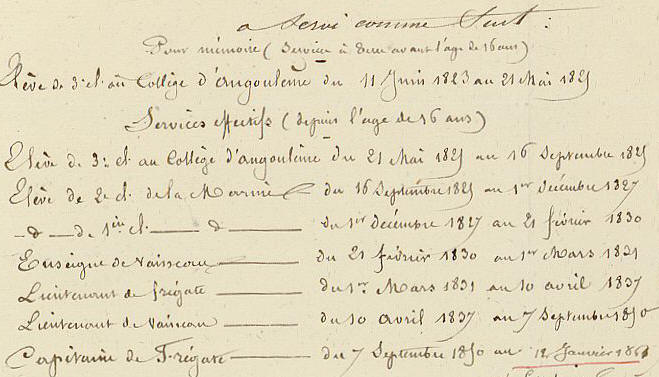 a servi comme suit :
Pour mémoire ( Service à Terre avant l'age de 16 ans )
Elève de 3e cl. au Collège d'Angoulême du 11 Juin 1823 au 21 Mai 1825
Services effectifs ( depuis l'age de 16 ans )
Elève de 3e cl. au Collège d'Angoulême du 21 Mai 1825 au 16 Septembre 1825
Elève de 2e cl. de la Marine du 16 Septembre 1825 au 1er Décembre 1827
- d - de 1ère cl. - d - du 1er Décembre 1827 au 21 février 1830
Enseigne de Vaisseau du 21 février 1830 au 1er Mars 1831
Lieutenant de frégate du 1er Mars 1831 au 10 avril 1837
Lieutenant de Vaisseau du 10 avril 1837 au 7 Septembre 1850
Capitaine de Frégate du 7 Septembre 1850 au 12 Janvier